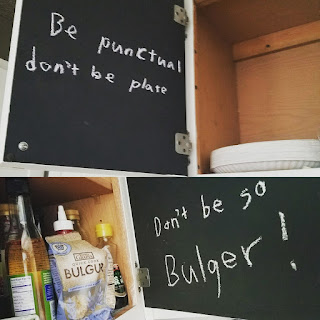 Be punctual
don't be plate
Don't be so
Bulger!
BULGUR